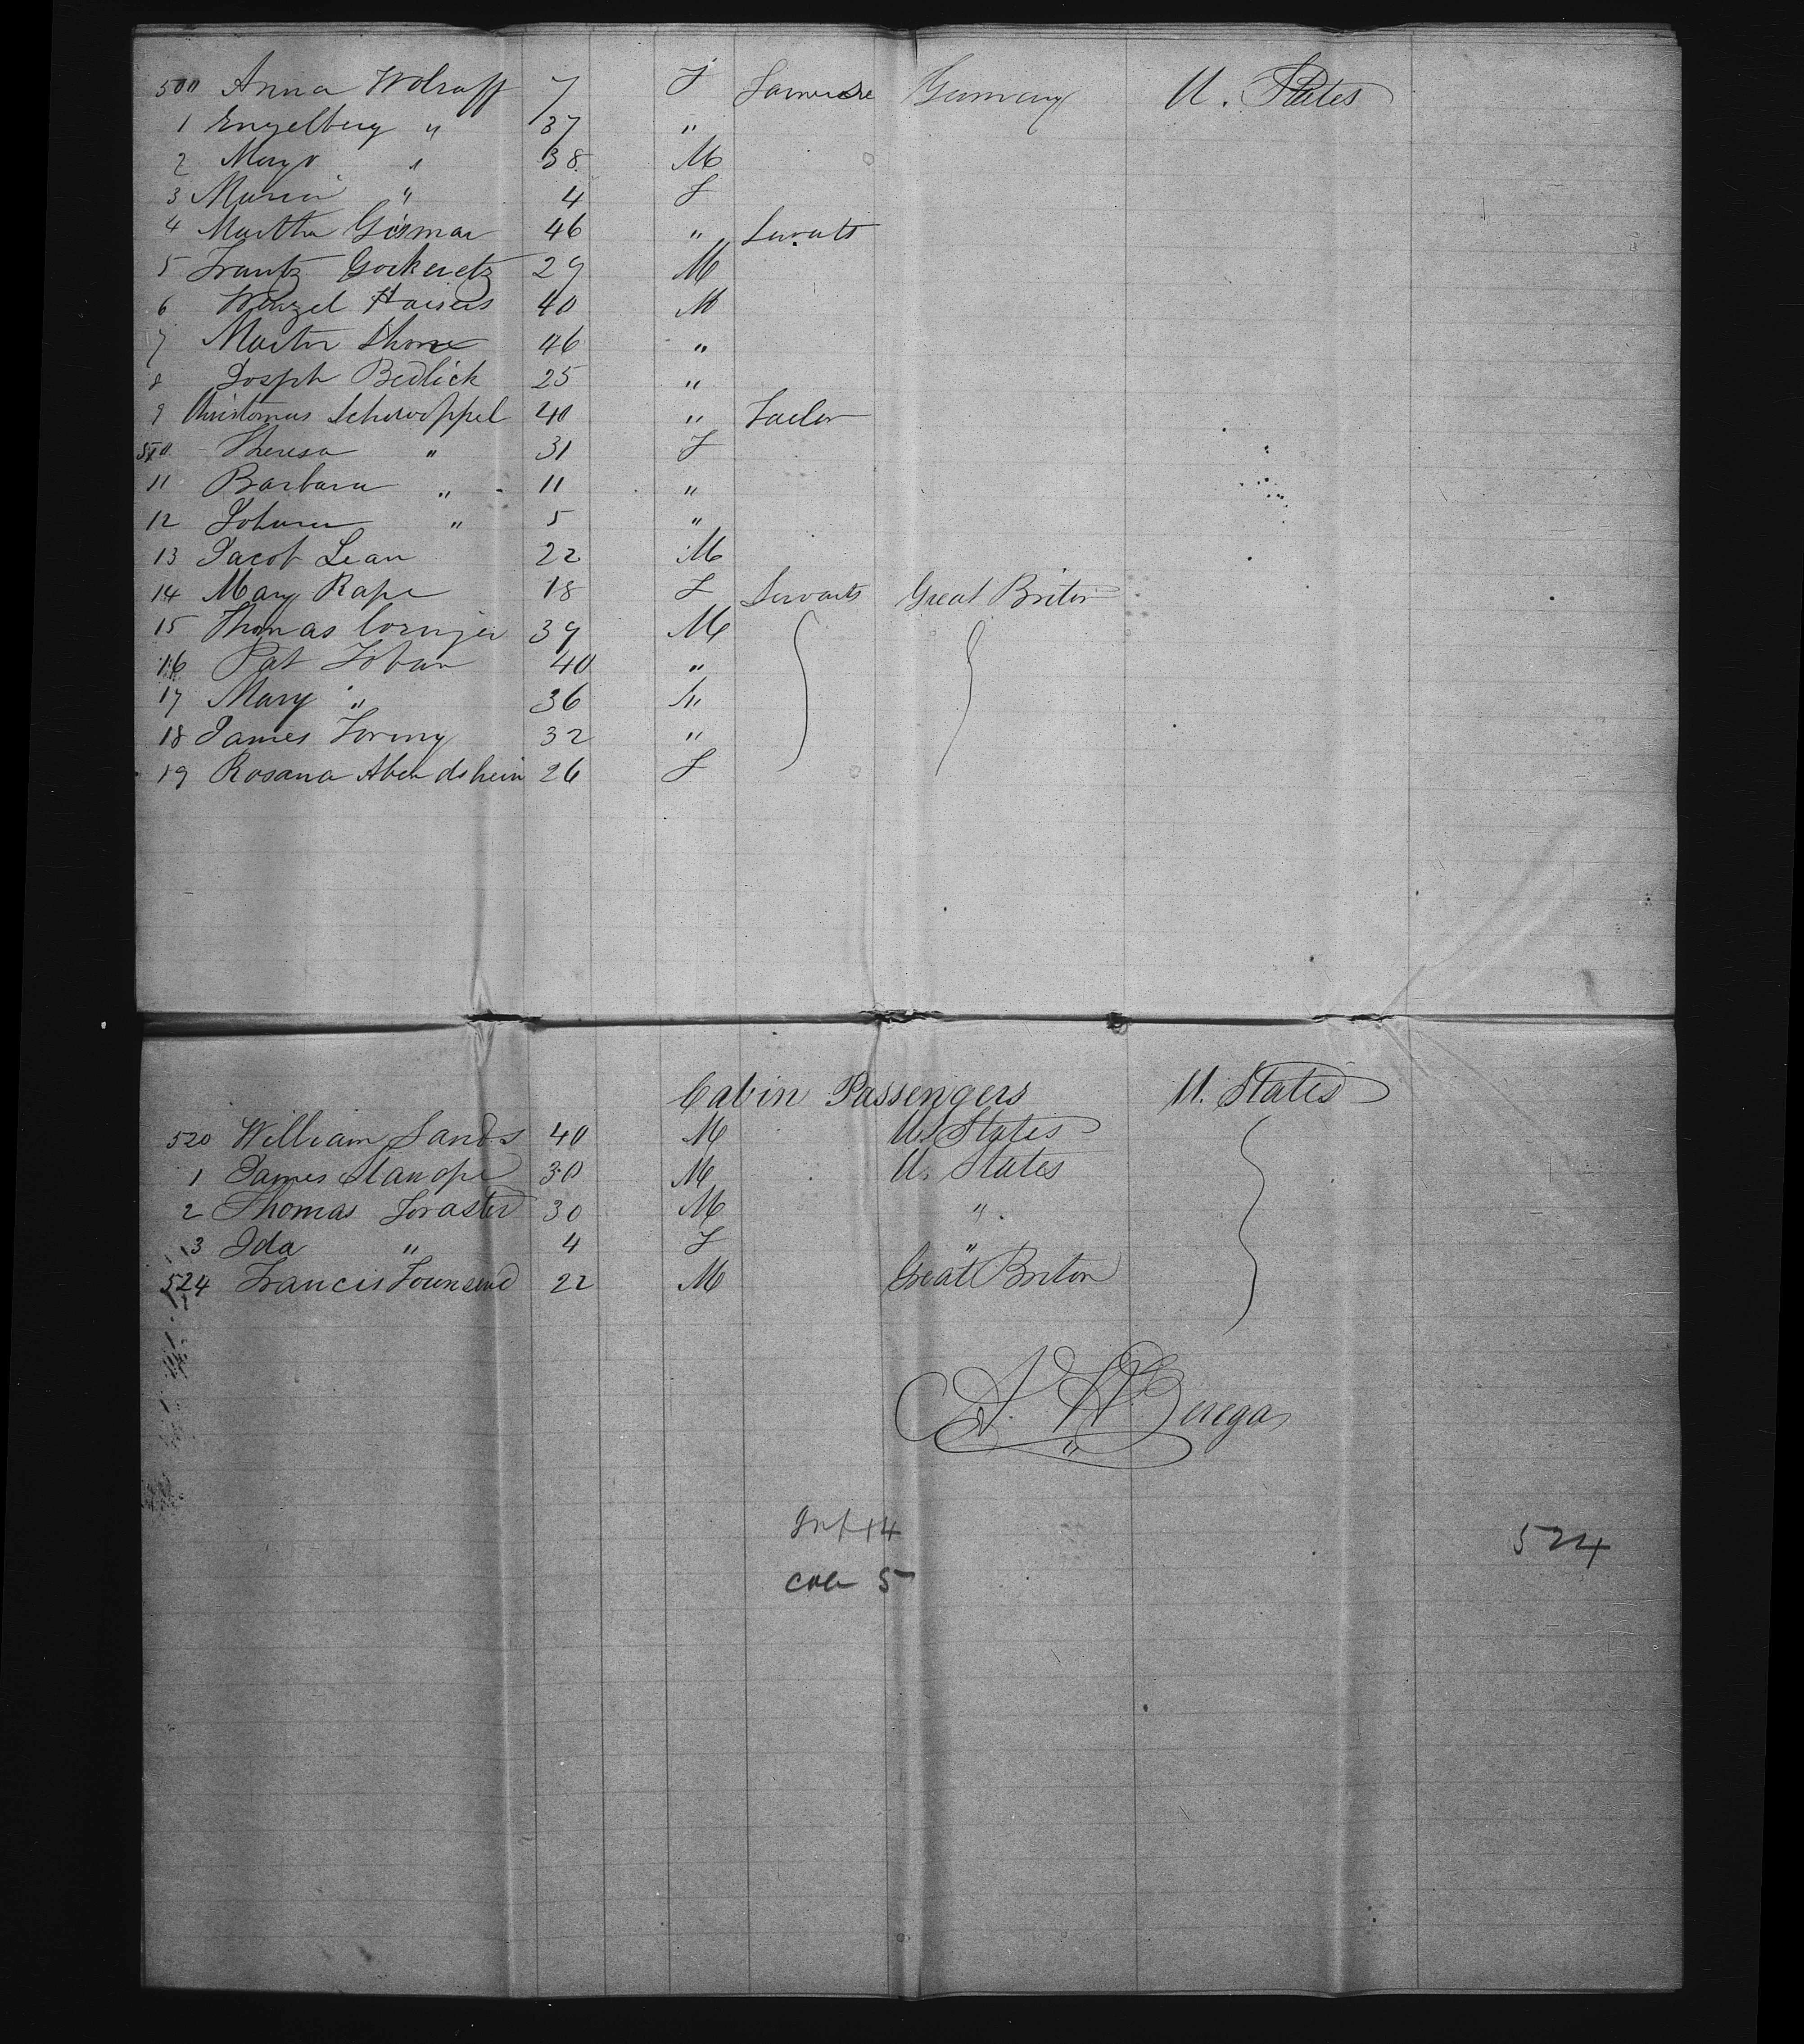 500 Anna Wolraff 7 F Germany U. States
1 Engelberg " 37 "
2 " 38 M
3 Maria " 4 F
4 Martha Gismar 46 " Servats
5 Frantz Gockeretz 29 M
6 Wenzel Haisers 40 M
7 Martin 46 "
8 Joseph Bedlick 25 "
9 Schwoppel 40 " Tailor
510 Theresa " 31 F
11 Barbara " 11 "
12 Johann " 5 "
13 Jacob Lean 22 M
14 Mary Rape 18 F Servants Great Briton
15 Thomas 39 M
16 Pat 40 "
17 Mary " 36 "
18 James 32 "
19 Rosana Abendshein 26 F
Cabin Passengers U. States
520 William Sands 40 M U. States
1 James Stanope 30 M U. States
2 Thomas Foraster 30 M "
3 Ida " 4 F "
524 Francis Townsend 22 M Great Briton
Inf 14
524
5